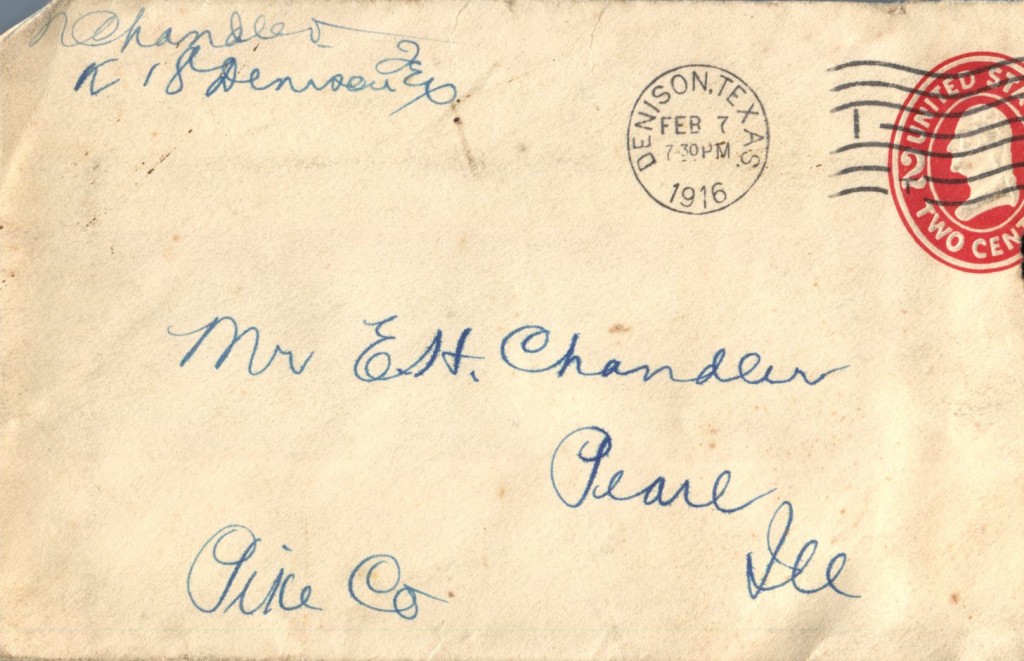 Chandler
R 18 Denison Tex
DENISON, TEXAS.
FEB 7
7-30 PM
1916
1
UNITED STA
2
TWO CENT
Mr E.H. Chandler
Pearl
Ill
Pike Co